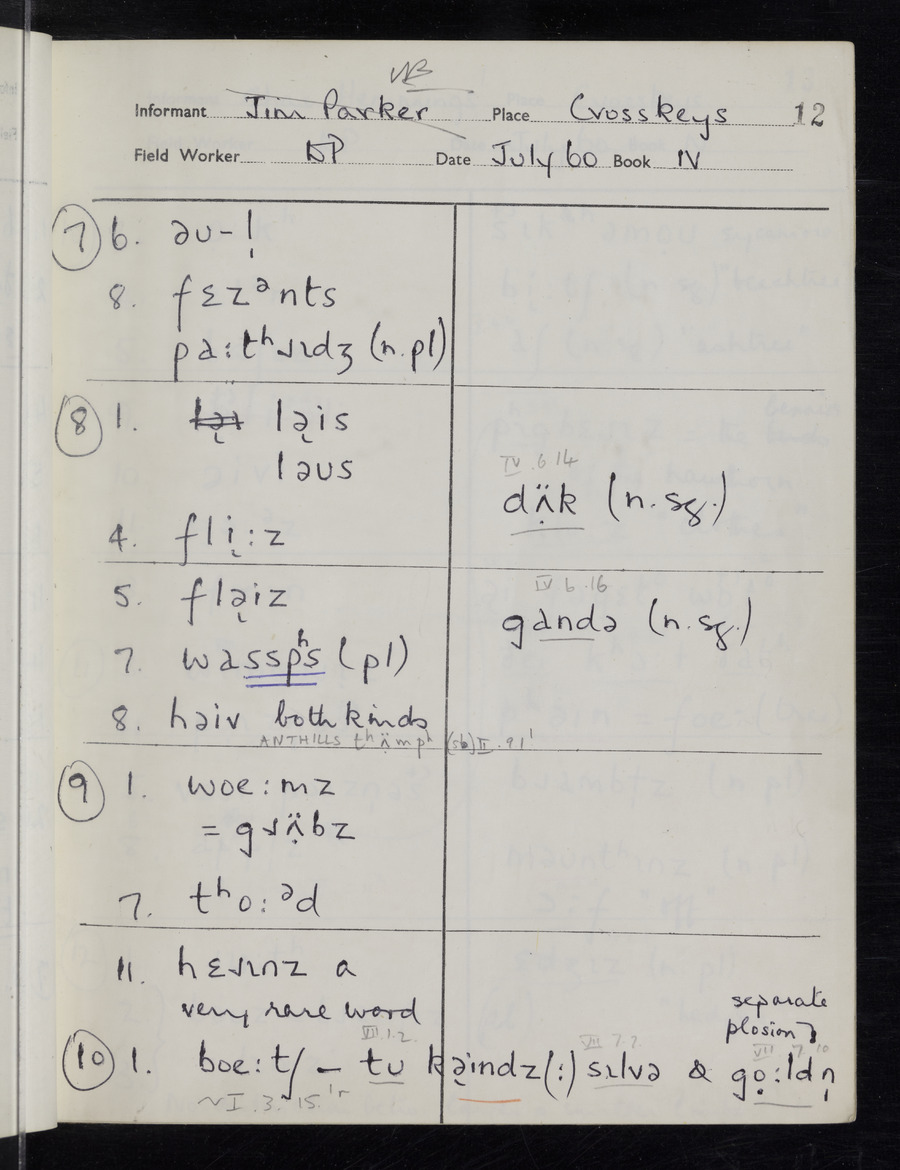 WB
Informant Jim Parker Place Crosskeys 12
Field Worker DP Date July 60 Book IV
7 6. əʊ-l̩
8. fɛzᵊnts
pa:tʰɹɪdʒ (n.pl)
8 1. lə̨is
ləʊs
IV.6.14
dʌ̣̈k (n.sg.)
4. fli̜:z
5. flə̨iz
IV.6.16
gandə (n.sg.)
7. wasspʰs (pl)
8. həiv both kinds
ANTHILLS tʰʌ̣̈mpʰ (sb) II.91'
9 1. woe:mz
= gɹʌ̣̈bz
7. tʰo:ᵊd
11. hɛɹɪnz a
very rare word
separate
plosion
VII.1.2. VII 7.7. VII 7 10
10 1. boe:tʃ – tʊ kə̨indz(:) sɪlvə & gọ:ldn̩
~I.3.15.'r